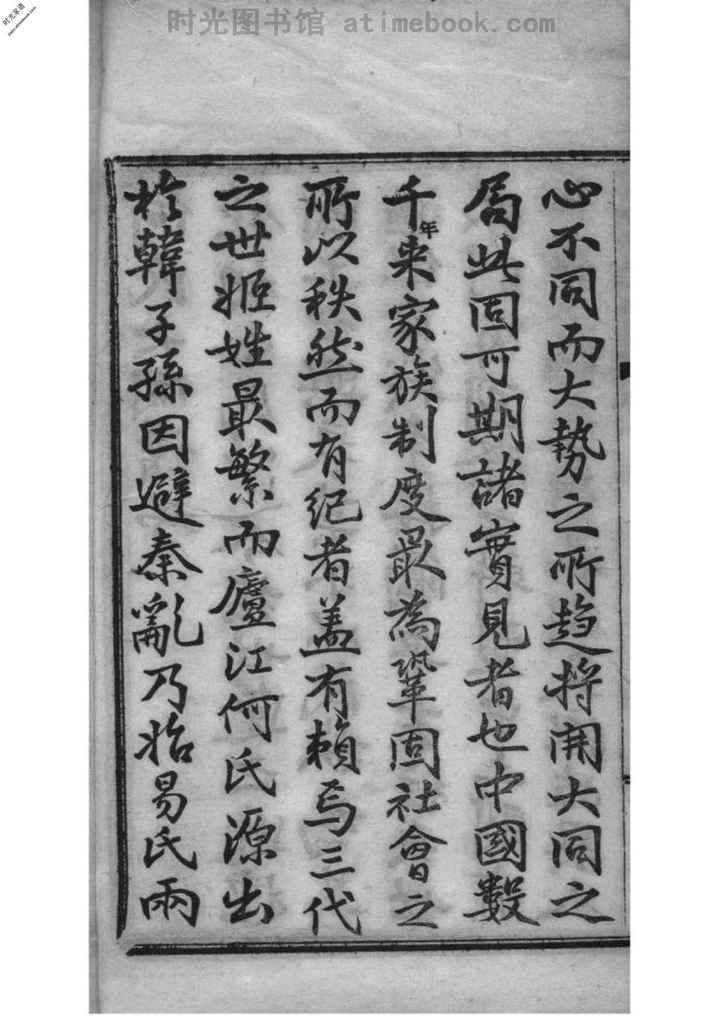 时光图书馆 atimebook.com
时光家谱
www.atimebook.com
心不同而大勢之所趋将開大同之
局此固可期諸實見者也中國數
千年来家族制度最為鞏固社會之
所以秩然而有纪者盖有賴焉三代
之世姬姓最繁而廬江何氏源出
於韓子孫因避秦亂乃始易氏兩